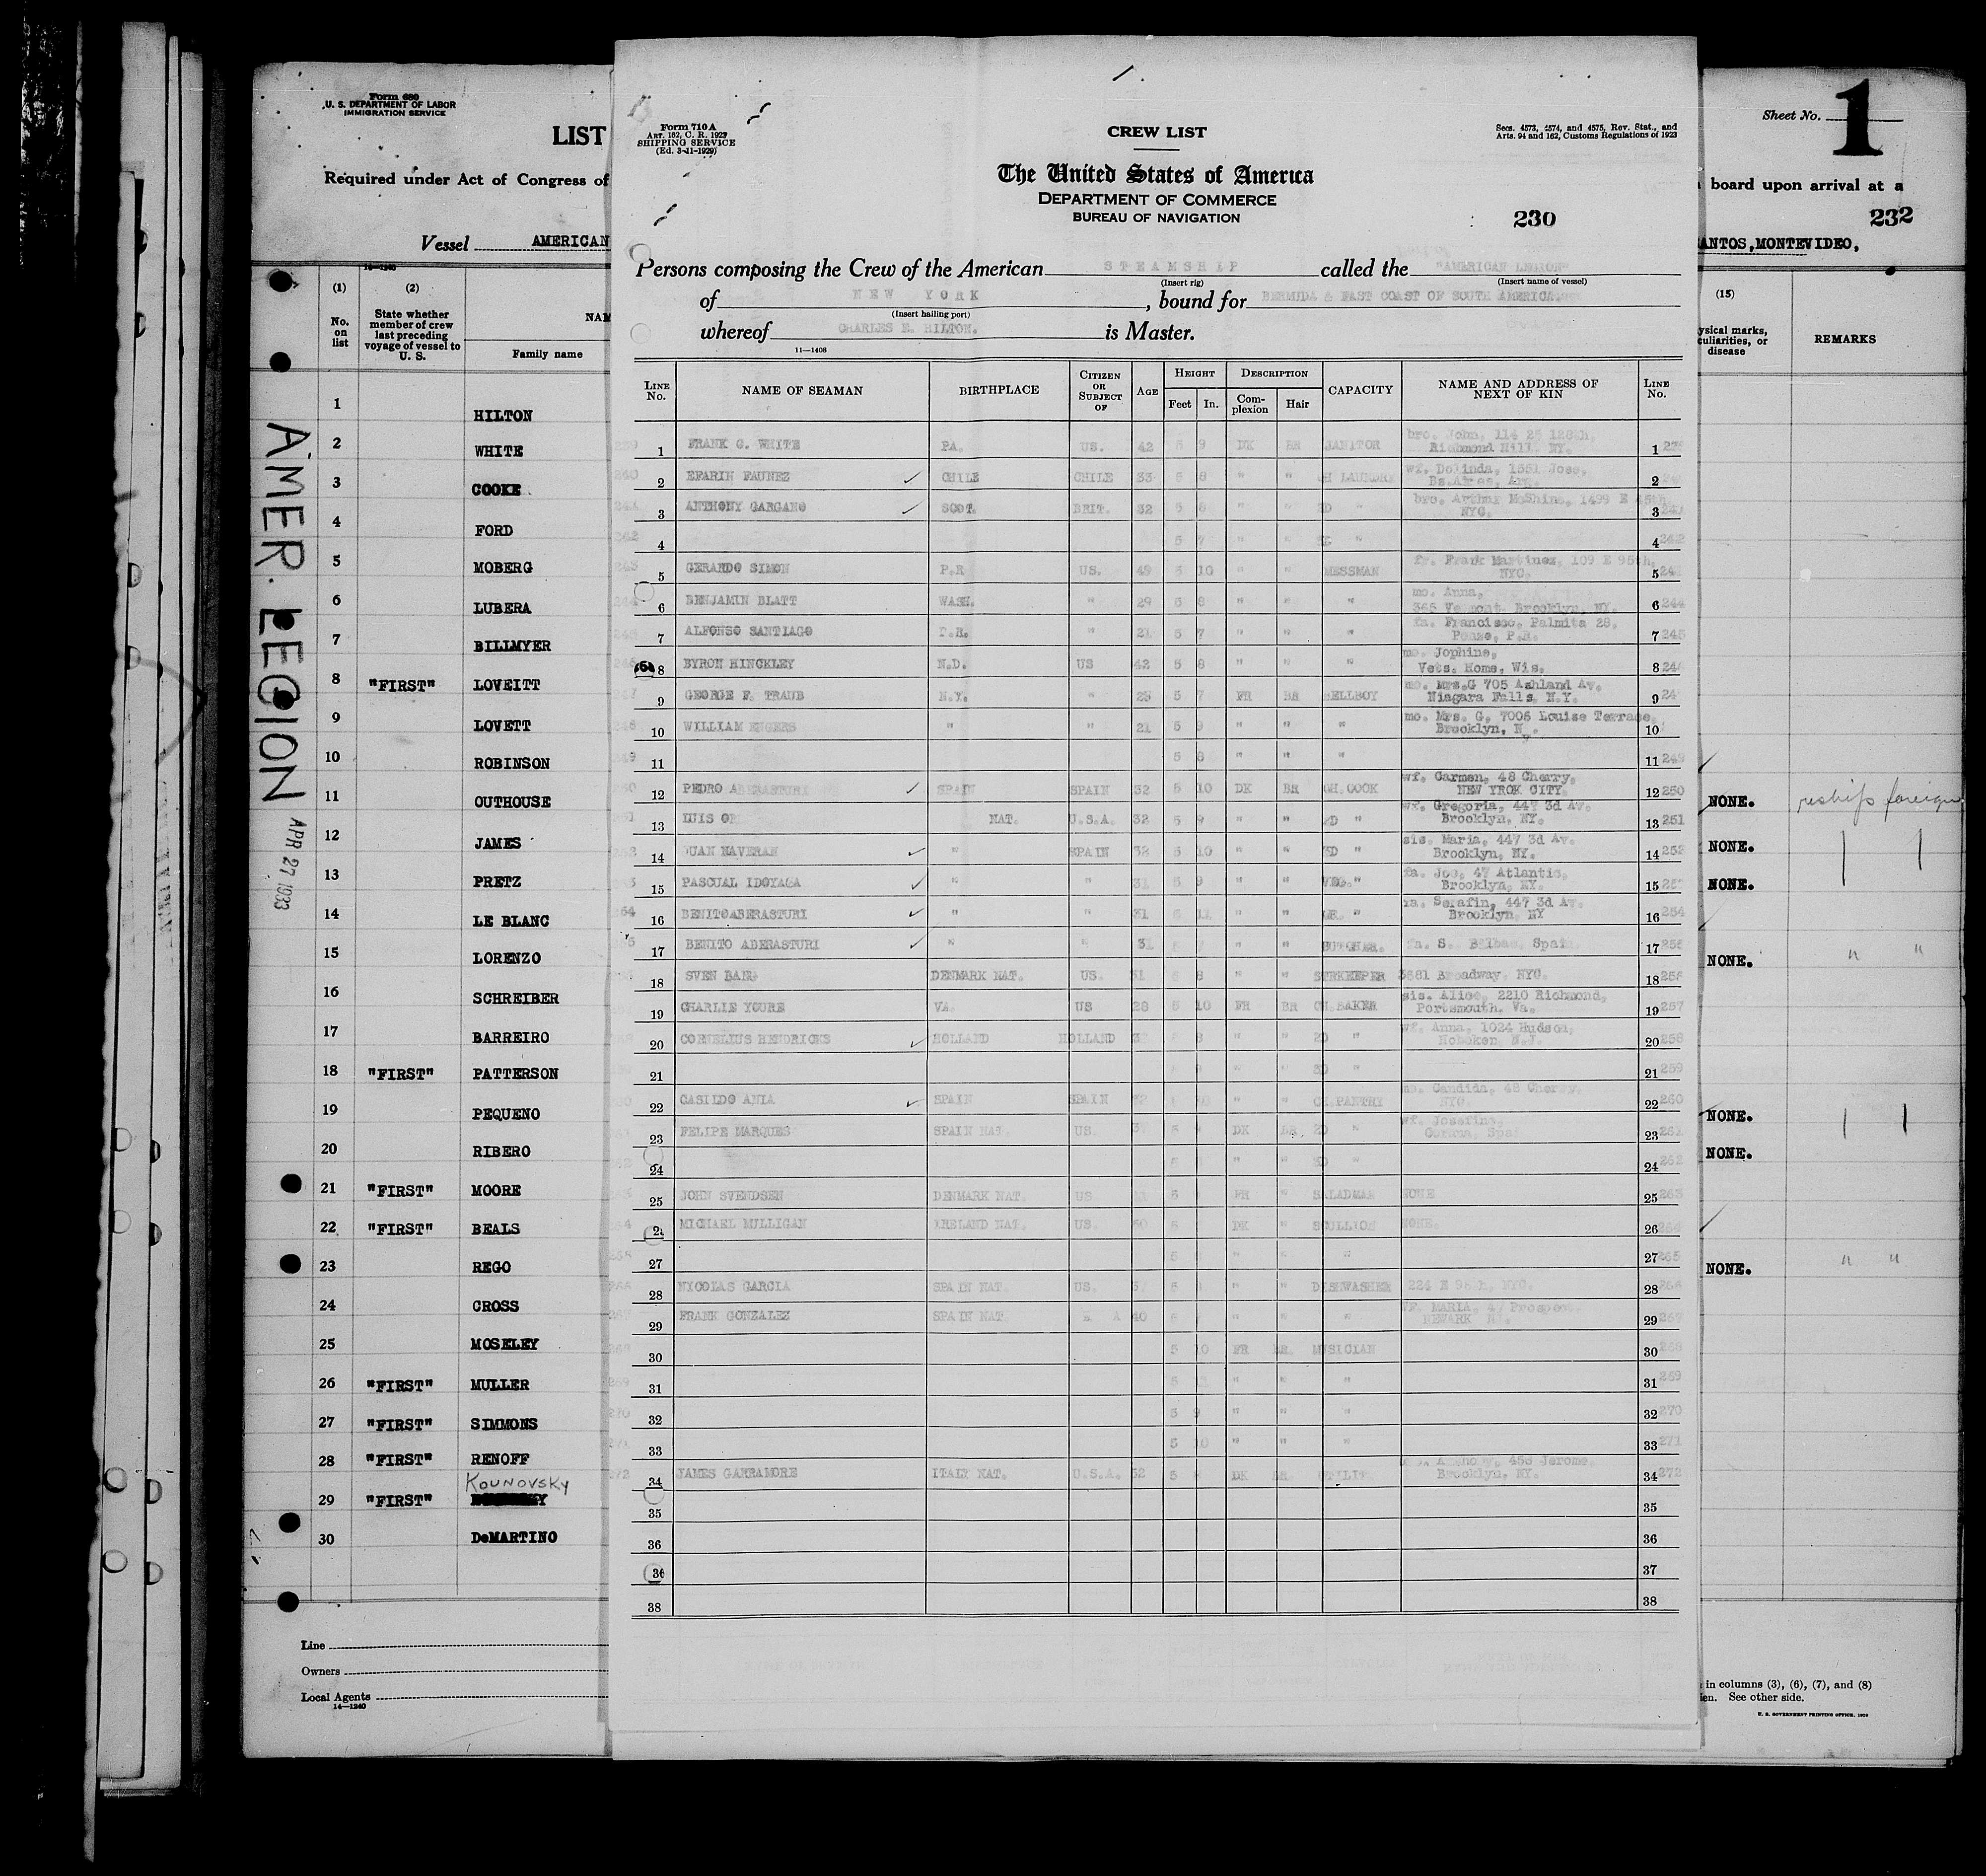 Form 680
U. S. DEPARTMENT OF LABOR
IMMIGRATION SERVICE
LIST
Required under Act of Congress of
Vessel AMERICAN
(1) (2)
No. on list
State whether member of crew last preceding voyage of vessel to U. S.
NAM
Family name
1 HILTON
2 WHITE
3 COOKE
4 FORD
5 MOBERG
6 LUBERA
7 BILLMYER
8 "FIRST" LOVEITT
9 LOVETT
10 ROBINSON
11 OUTHOUSE
12 JAMES
13 PRETZ
14 LE BLANC
15 LORENZO
16 SCHREIBER
17 BARREIRO
18 "FIRST" PATTERSON
19 PEQUENO
20 RIBERO
21 "FIRST" MOORE
22 "FIRST" BEALS
23 REGO
24 CROSS
25 MOSELEY
26 "FIRST" MULLER
27 "FIRST" SIMMONS
28 "FIRST" RENOFF
KOUNOVSKY
29 "FIRST"
30 DeMARTINO
Line
Owners
Local Agents
14—1240
AMER. LEGION APR 27 1933
Form 710 A
ART. 162, C. R. 1923
SHIPPING SERVICE
(Ed. 3-11-1929)
CREW LIST
Secs. 4573, 4574, and 4575, Rev. Stat., and
Arts. 94 and 162, Customs Regulations of 1923
The United States of America
DEPARTMENT OF COMMERCE
BUREAU OF NAVIGATION
230
Persons composing the Crew of the American STEAMSHIP called the "AMERICAN LEGION"
(Insert rig) (Insert name of vessel)
of NEW YORK, bound for BERMUDA & EAST COAST OF SOUTH AMERICA.
(Insert hailing port)
whereof CHARLES E. HILTON. is Master.
11—1408
LINE No. NAME OF SEAMAN BIRTHPLACE CITIZEN OR SUBJECT OF AGE HEIGHT Feet In. DESCRIPTION Complexion Hair CAPACITY NAME AND ADDRESS OF NEXT OF KIN LINE No.
1 FRANK G. WHITE PA. US. 42 5 9 DK BR JANITOR bro. John, 114 25 128th, Richmond Hill. NY. 1
2 EFARIN FAUNEZ CHILE CHILE 33 5 8 " " CH LAUNDRY wf. Dolinda, 1551 Jose, Bs.Aires, Arg. 2
3 ANTHONY GARGANO SCOT. BRIT. 32 5 8 " " 2D " bro. Arthur McShine, 1499 E 45th NYC. 3
4 5 7 " " 3D " 4
5 GERARDO SIMON P.R US. 49 5 10 " " MESSMAN fr. Frank Martinez, 109 E 95th, NYC. 5
6 BENJAMIN BLATT WASH. " 29 5 8 " " " mo. Anna, 365 Vermont, Brooklyn, NY. 6
7 ALFONSO SANTIAGO P.R. " 21 5 7 " " " fa. Francisco, Palmita 28, Ponse, P.R. 7
8 BYRON HINCKLEY N.D. US 42 5 8 " " " mo. Jophine, Vets. Home, Wis. 8
9 GEORGE F. TRAUB N.Y. " 23 5 7 FR BR BELLBOY mo. Mrs.G 705 Ashland Av. Niagara Falls, N.Y. 9
10 WILLIAM ENGERS " " 21 5 9 " " " mo. Mrs. G, 7006 Louise Terrace, Brooklyn, N . 10
11 5 8 " " " 11
12 PEDRO ABERASTURI SPAIN SPAIN 32 5 10 DK BR CH.COOK wf. Carmen, 48 Cherry, NEW YROK CITY. 12 250
13 LUIS NAT. U.S.A. 32 5 9 " " 2D " wf. Gregoria, 447 3d Av. Brooklyn, NY. 13 251
14 JUAN NAVERAN " SPAIN 32 5 10 " " 3D " sis. Maria, 447 3d Av. Brooklyn, NY. 14
15 PASCUAL IDOYAGA " " 31 5 9 " " VEG." fa. Joe, 47 Atlantic, Brooklyn, NY. 15
16 BENITOABERASTURI " " 31 5 11 " " GR. " fa. Serafin, 447 3d Av. Brooklyn, NY 16 254
17 BENITO ABERASTURI " " 31 " " BUTCHER. fa. S. Bilbao, Spain 17
18 SVEN DENMARK NAT. US. 31 8 " " STRKEEPER 3681 Broadway, NYC. 18 256
19 CHARLIE YOURE VA. US 28 5 10 FR BR CH.BAKER sis. Alice, 2210 Richmond, Portsmouth, Va. 19 257
20 CORNELIUS HENDRICKS HOLLAND HOLLAND " " 2D " wf. Anna, 1024 Hudson, Hoboken, N.J. 20 258
21 " " 3D " 21 259
22 CASILDO ANIA SPAIN SPAIN " " CH.PANTRY mo. Candida, 48 Cherry, NYC. 22 260
23 FELIPE MARQUES SPAIN NAT. US. DK BR 2D " wf. Josefina, 23
24 " " 3D " 24
25 JOHN SVENDSEN DENMARK NAT. US 5 FR " SALADMAN NONE 25 263
26 MICHAEL MULLIGAN IRELAND NAT. US. 50 5 DK " SCULLION NONE. 26
27 5 " " " 27 265
28 NICOLAS GARCIA SPAIN NAT. US. 5 " " DISHWASHER 224 E 98th, NYC. 28
29 FRANK GONZALEZ SPAIN NAT. 40 " " " WF. MARIA, 47 Prospect. NEWARK NJ. 29
30 5 10 FR BR. MUSICIAN 30
31 5 " 31 269
32 5 9 " " " 32 270
33 5 10 " " " 33 271
34 JAMES GARRAMORE ITALY NAT. U.S.A. 52 5 DK BR. UTILITY 458 Jerome, Brooklyn, NY. 34 272
35 35
36 36
36 37
38 38
Sheet No. 1
board upon arrival at a
232
ANTOS,MONTEVIDEO,
(15)
ysical marks, culiarities, or disease
REMARKS
NONE. reship foreign
NONE.
NONE.
NONE. " "
NONE.
NONE.
NONE. " "
in columns (3), (6), (7), and (8)
en. See other side.
U. S. GOVERNMENT PRINTING OFFICE, 1929